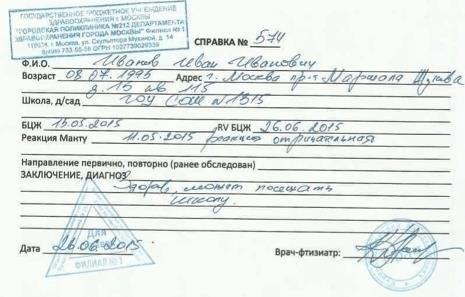 ГОСУДАРСТВЕННОЕ БЮДЖЕТНОЕ УЧРЕЖДЕНИЕ
ЗДРАВООХРАНЕНИЯ г. МОСКВЫ
"ГОРОДСКАЯ ПОЛИКЛИНИКА №212 ДЕПАРТАМЕНТА
ЗДРАВООХРАНЕНИЯ ГОРОДА МОСКВЫ" Филиал № 1
г. Москва, ул. Скульптора Мухиной, д. 14
ОГРН 1027739029339
СПРАВКА № 574
Ф.И.О. Иванов Иван Иванович
Возраст 08.07.1995 Адрес г. Москва пр-т Маршала
д. 15 кв 115
Школа, д/сад ГОУ СОШ №1315
БЦЖ 15.05.2015 RV БЦЖ 26.06.2015
Реакция Манту 11.05.2015 реакция отрицательная
Направление первично, повторно (ранее обследован)
ЗАКЛЮЧЕНИЕ, ДИАГНОЗ
Здоров, может посещать
школу.
Дата 26.06.2015 Врач-фтизиатр:
ДЛЯ
ФИЛИАЛ №1